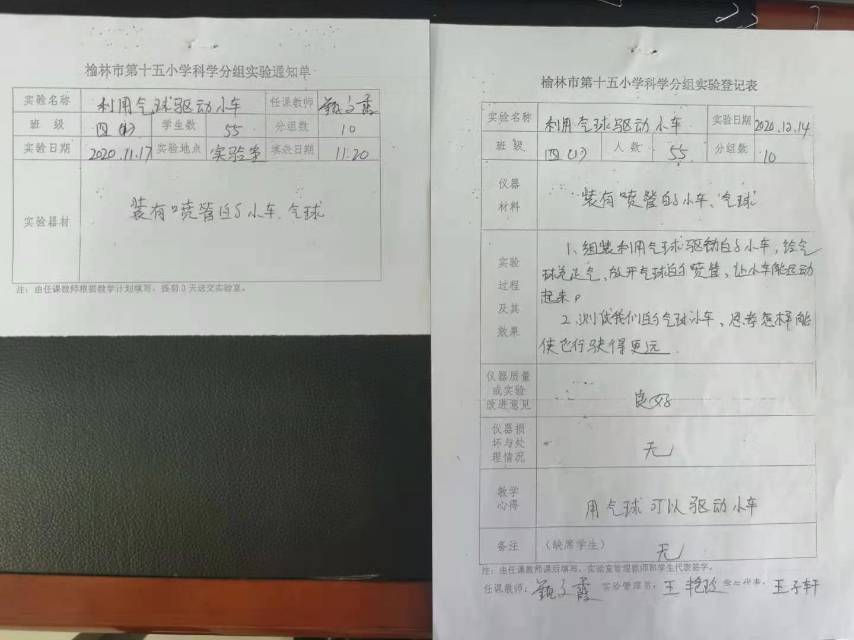 榆林市第十五小学科学分组实验通知单
实验名称 利用气球驱动小车 任课教师 甄霞
班级 四(1) 学生数 55 分组数 10
实验日期 2020.11.17 实验地点 实验室 日期 11.20
实验器材 装有喷管的小车、气球
注：由任课教师根据教学计划填写，提前3天送交实验室。
榆林市第十五小学科学分组实验登记表
实验名称 利用气球驱动小车 实验日期 2020.12.14
班级 四(1) 人数 55 分组数 10
仪器材料 装有喷管的小车、气球
实验过程及其效果
1、组装利用气球驱动的小车，给气
球充足气，放开气球的喷管，让小车能运动
起来。
2、测试我们的气球小车，思考怎样能
使它行驶得更远.
仪器质量或实验改进意见 良好
仪器损坏与处理情况 无
教学心得 用气球可以驱动小车
备注 （缺席学生） 无
注：由任课教师课后填写，实验室管理教师和学生代表签字。
任课教师：甄霞 实验管理员：王艳玲 学生代表：王子轩